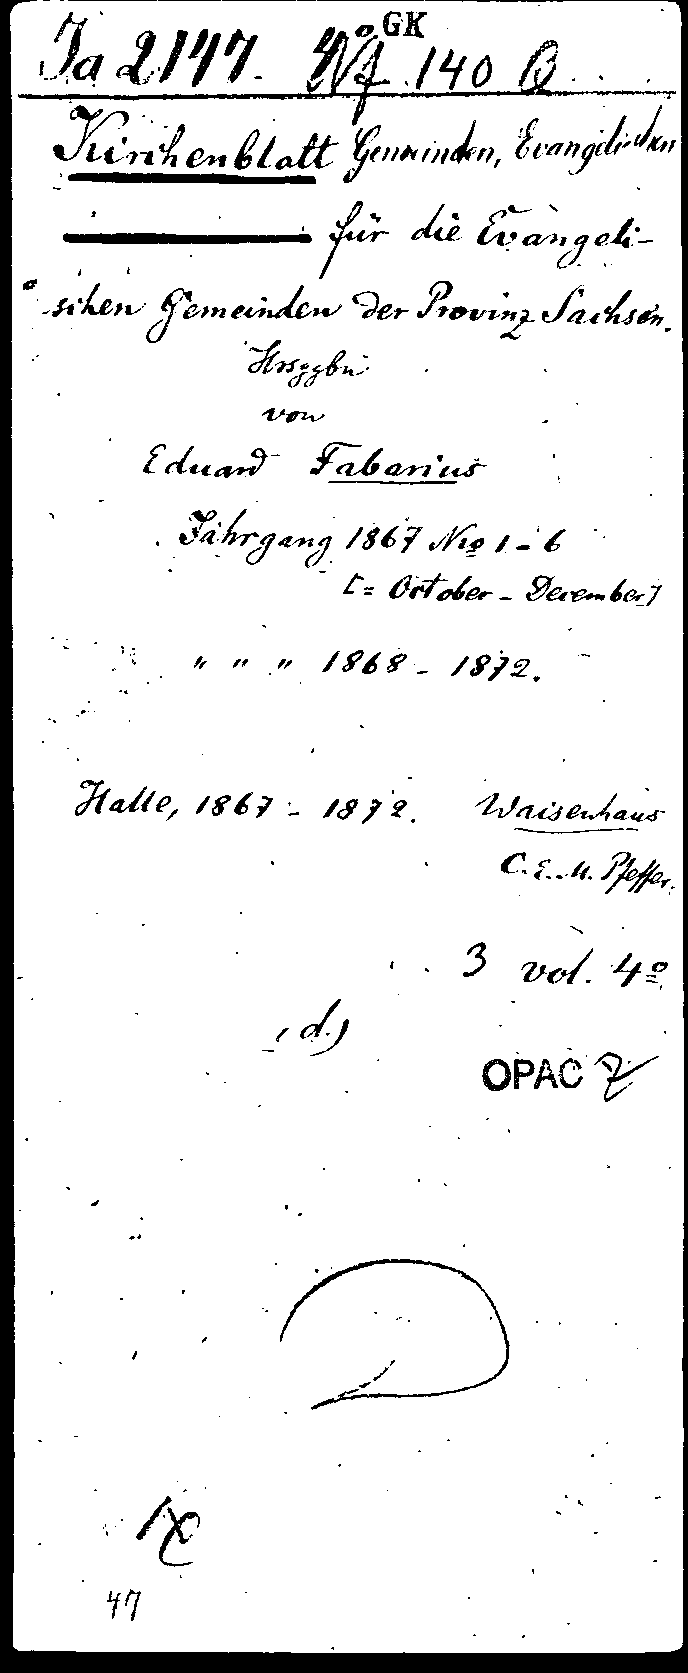 GK
Ja 2147. 4° Nf 140 Q
Kirchenblatt Gemeinden, Evangelischen
für die Evangeli-
schen Gemeinden der Provinz Sachsen.
Hrsggbn
von
Eduard Fabarius
Jahrgang 1867 Nro 1-6
[= October - December]
" " " 1868 - 1872.
Halle, 1867 - 1872. Waisenhaus
C. E. M. Pfeffer.
3 vol. 4°
(d.)
OPAC
47